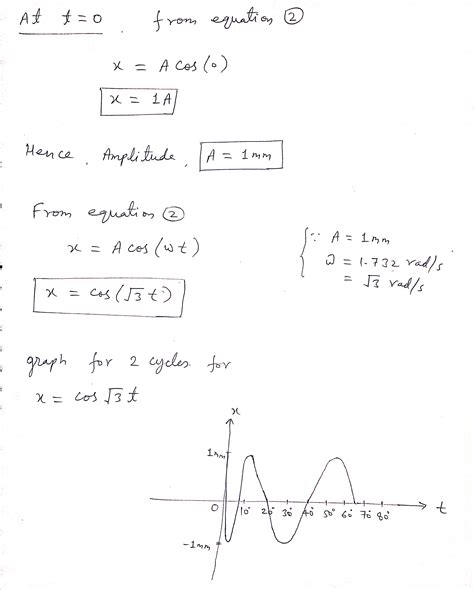 At t=0, from equation ②
x = A cos(0)
x = 1A
Hence, Amplitude, A = 1mm
From equation ②
x = A cos(ωt)
∵ A = 1mm
ω = 1.732 rad/s
= √3 rad/s
x = cos(√3 t)
graph for 2 cycles for
x = cos √3 t
x
1mm
0
10° 20° 30° 40° 50° 60° 70° 80° t
-1mm